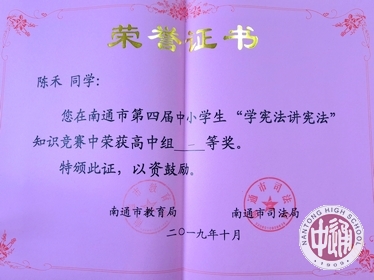 荣誉证书
陈禾 同学:
您在南通市第四届中小学生“学宪法讲宪法”
知识竞赛中荣获高中组 等奖。
特颁此证，以资鼓励。
南通市教育局 南通市司法局
二〇一九年十月
南通市司法
NANTONG HIGH SCHOOL
中通
1909